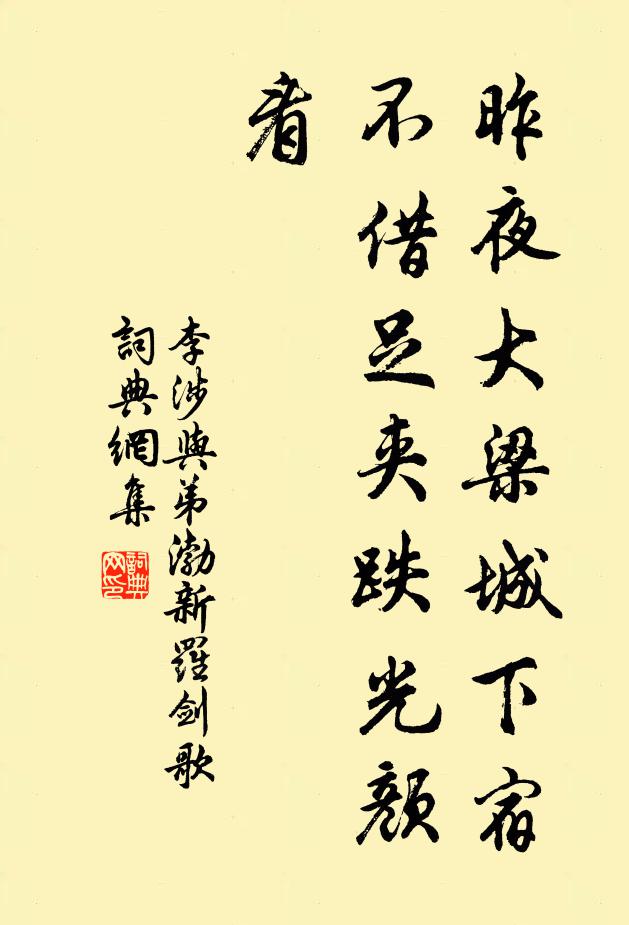 昨夜大梁城下宿
不借足夾跌光顏
看
李涉與弟渤新羅剑歌
詞典網集
詞典
网印